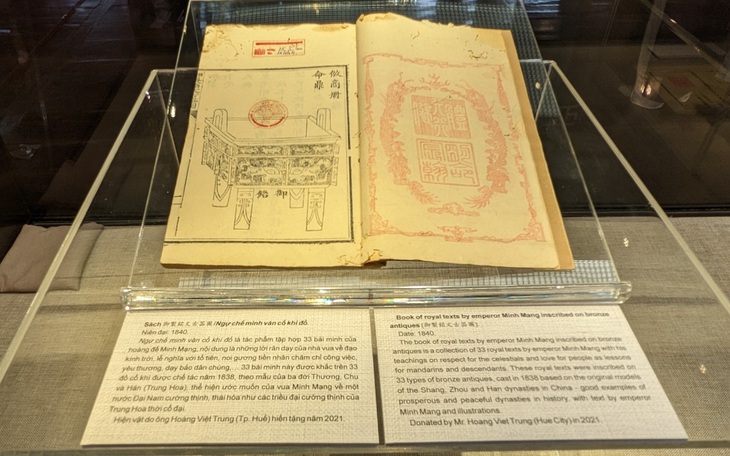 倣高册
命鼎
御銘
Sách 御製銘文古器圖 (Ngự chế minh văn cổ khí đồ.
Niên đại: 1840.
Ngự chế minh văn cổ khí đồ là tác phẩm tập hợp 33 bài minh của
hoàng đế Minh Mạng, nội dung là những lời răn dạy của nhà vua về đạo
kính trời, lễ nghĩa với tổ tiên, noi gương tiền nhân chăm chỉ công việc,
yêu thương, dạy bảo dân chúng,... 33 bài minh này được khắc trên 33
đồ cổ khí được chế tác năm 1838, theo mẫu của ba đời Thương, Chu
và Hán (Trung Hoa), thể hiện ước muốn của vua Minh Mạng về một
nước Đại Nam cường thịnh, thái hòa như các triều đại cường thịnh của
Trung Hoa thời cổ đại.
Hiện vật do ông Hoàng Việt Trung (Tp. Huế) hiến tặng năm 2021.
Book of royal texts by emperor Minh Mang inscribed on bronze
antiques (御製銘文古器圖).
Date: 1840.
The book of royal texts by emperor Minh Mang inscribed on bronze
antiques is a collection of 33 royal texts by emperor Minh Mang with his
teachings on respect for the celestials and love for people as lessons
for mandarins and descendants. These royal texts were inscribed on
33 types of bronze antiques, cast in 1838 based on the original models
of the Shang, Zhou and Han dynasties in China - good examples of
prosperous and peaceful dynasties in history, with text by emperor
Minh Mang and illustrations.
Donated by Mr. Hoang Viet Trung (Hue City) in 2021.